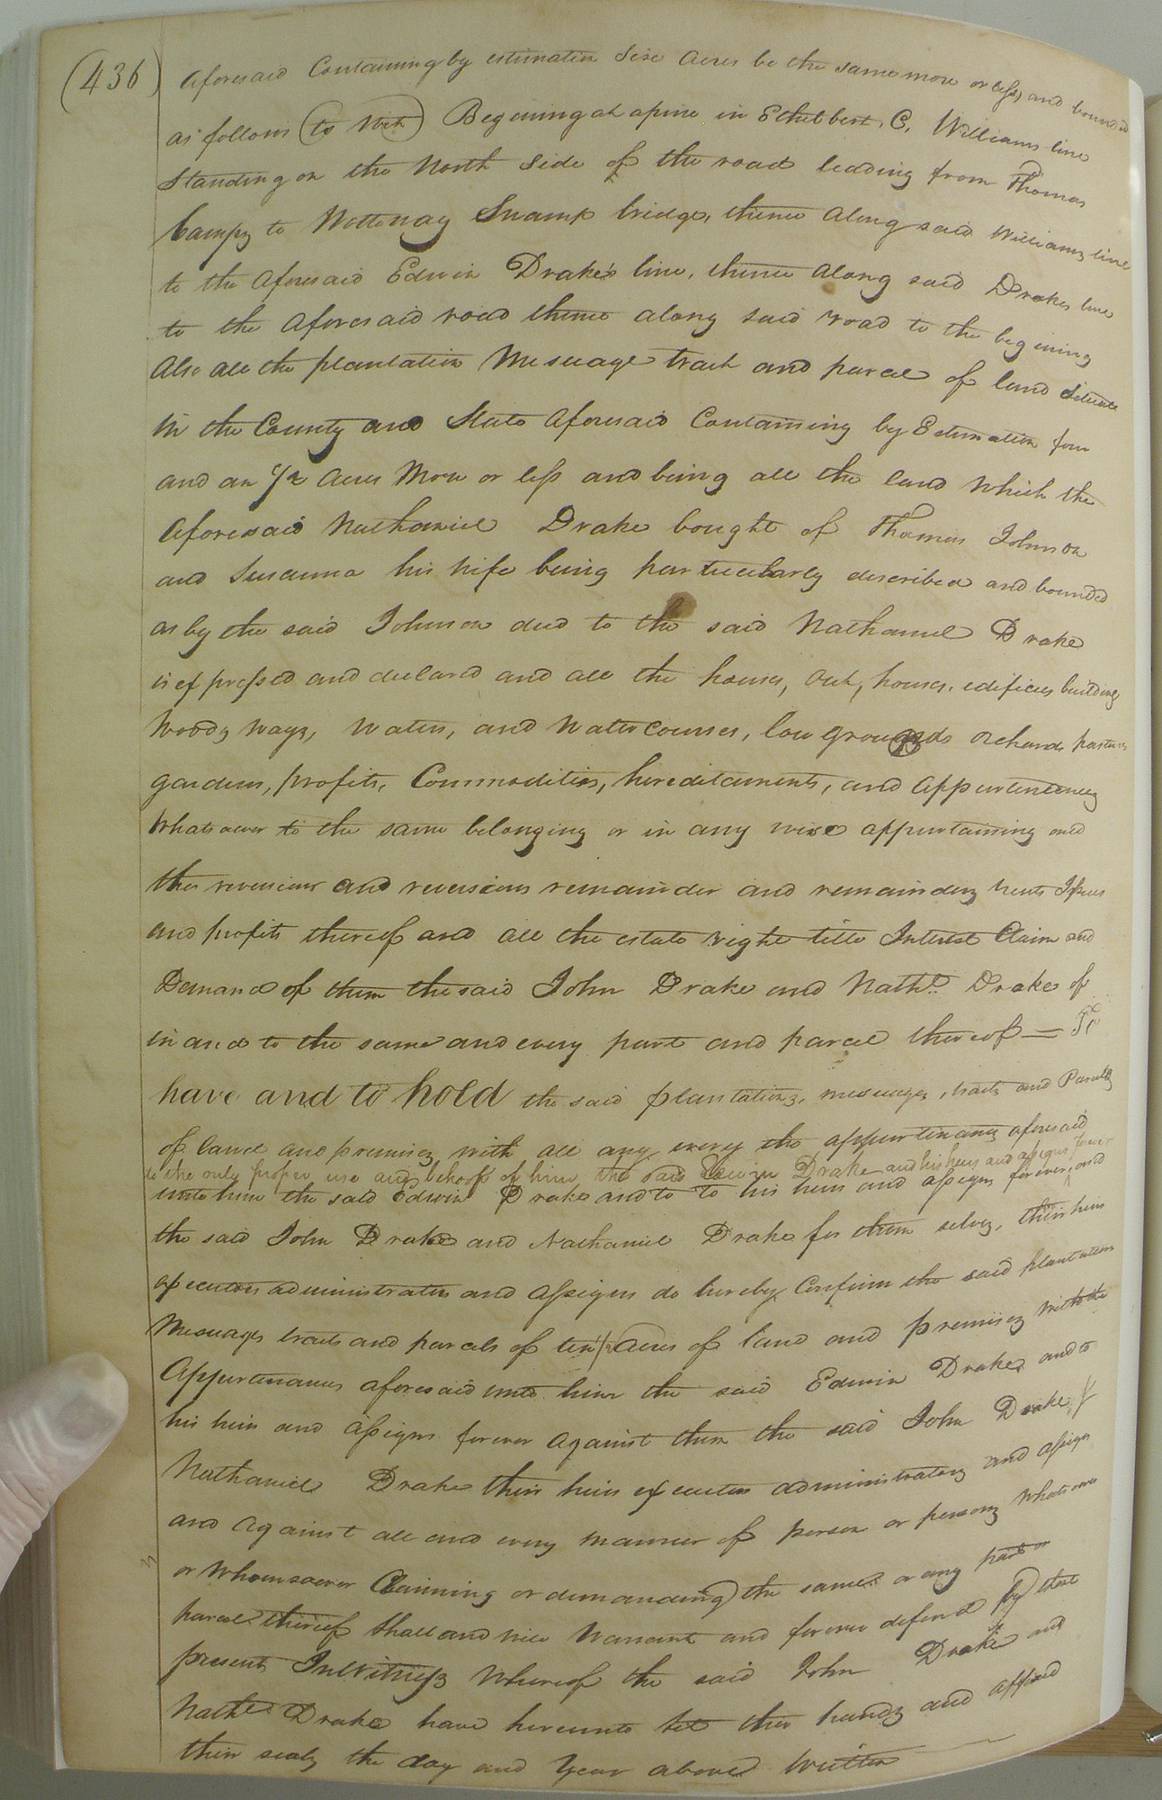 (436)
aforesaid Containing by estimation Six acres be the same more or less and bounded
as follows (to Wit) Begening at a pine in Ethelbert C. Williams line
Standing on the North Side of the road leading from Thomas
Camps to Nottoway Swamp bridge, thence along said Williams line
to the aforesaid Edwin Drake's line, thence along said Drakes line
to the aforesaid road thence along said road to the begening
Also all the plantation Mesuage tract and parcel of land Situate
in the County and State aforesaid Containing by Estimation four
and an 1/2 acres More or less and being all the land which the
aforesaid Nathaniel Drake bought of Thomas Johnson
and Susanna his wife being particularly described and bounded
as by the said Johnson deed to the said Nathaniel Drake
is expressed and declared and all the houses, out, houses, edifices building
woods ways, waters, and Water Courses, low grounds orchards pastures
gardens, profits, Commodities, hereditaments, and appurtenances
whatsoever to the same belonging or in any wise appurtaining and
the reversions and reversions remainder and remainders rents Issues
and profits thereof and all the estate right title Interest Claim and
Demand of them the said John Drake and Nathl. Drake of
in and to the same and every part and parcel thereof = To
have and to hold the said plantations, mesuages, tracts and Parcels
of land and premises with all any every the appurtenances aforesaid
to the only proper use and behoof of him the said Edwin Drake and his heirs and assigns forever
unto him the said Edwin Drake and to to his heirs and assigns forever, and
the said John Drake and Nathaniel Drake for them selves, their heirs
executors administrators and assigns do hereby Confirm the said plantations
Mesuages tracts and parcels of ten 1/2 acres of land and premises with the
Appurtenances aforesaid unto him the said Edwin Drake and to
his heirs and assigns forever against them the said John Drake &
Nathaniel Drake their heirs executors administrators and assigns
and against all and every manner of person or persons whatsoever
or Whomsoever Claiming or demanding the same or any part or
parcel thereof shall and will warrant and forever defend by these
presents In Witness Whereof the said John Drake and
Nathl Drake have hereunto set ther hands and affixed
their seals the day and Year above Written